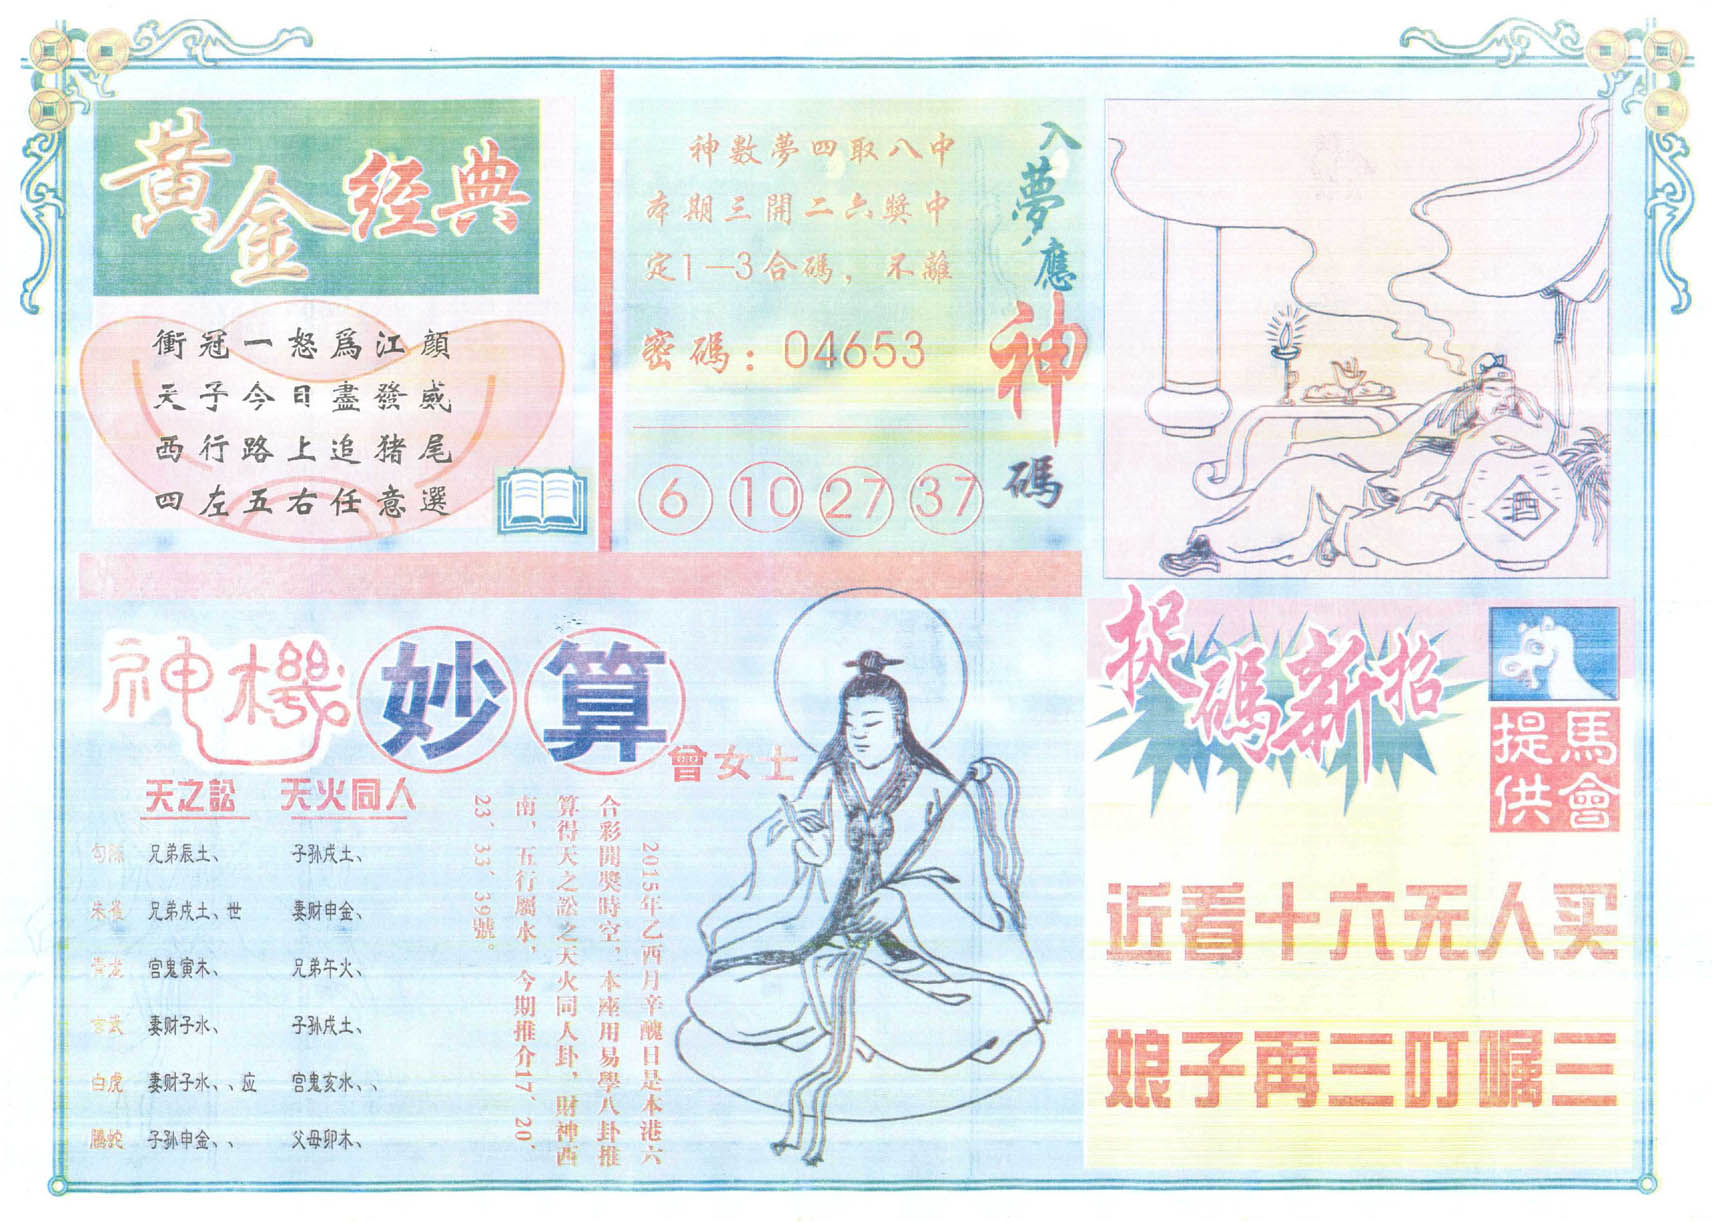 黃金经典
衝冠一怒爲江顔
天子今日盡發威
西行路上追猪尾
四左五右任意選
神數夢四取八中
本期三開二六獎中
定1—3合碼，不離
密碼：04653
6 10 27 37
入夢應神碼
酒
神機妙算
曾女士
天之訟 天火同人
勾陈 兄弟辰土、 子孙戌土、
朱雀 兄弟戍土、世 妻财申金、
青龙 宫鬼寅木、 兄弟午火、
玄武 妻财子水、 子孙戌土、
白虎 妻财子水、、应 宫鬼亥水、、
腾蛇 子孙申金、、 父母卯木、
2015年乙酉月辛醜日是本港六
合彩開獎時空，本座用易學八卦推
算得天之訟之天火同人卦，財神西
南，五行屬水，今期推介17、20、
23、33、39號。
捉碼新招
馬會
提供
近看十六无人买
娘子再三叮嘱三